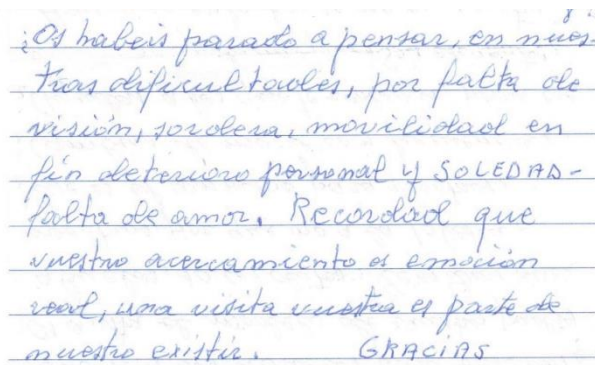 ¿Os habeis parado a pensar, en nues-
tras dificultades, por falta de
visión, sordera, movilidad en
fin deterioro personal y SOLEDAD-
falta de amor. Recordad que
vuestro acercamiento es emoción
real, una visita vuestra es parte de
nuestro existir. GRACIAS